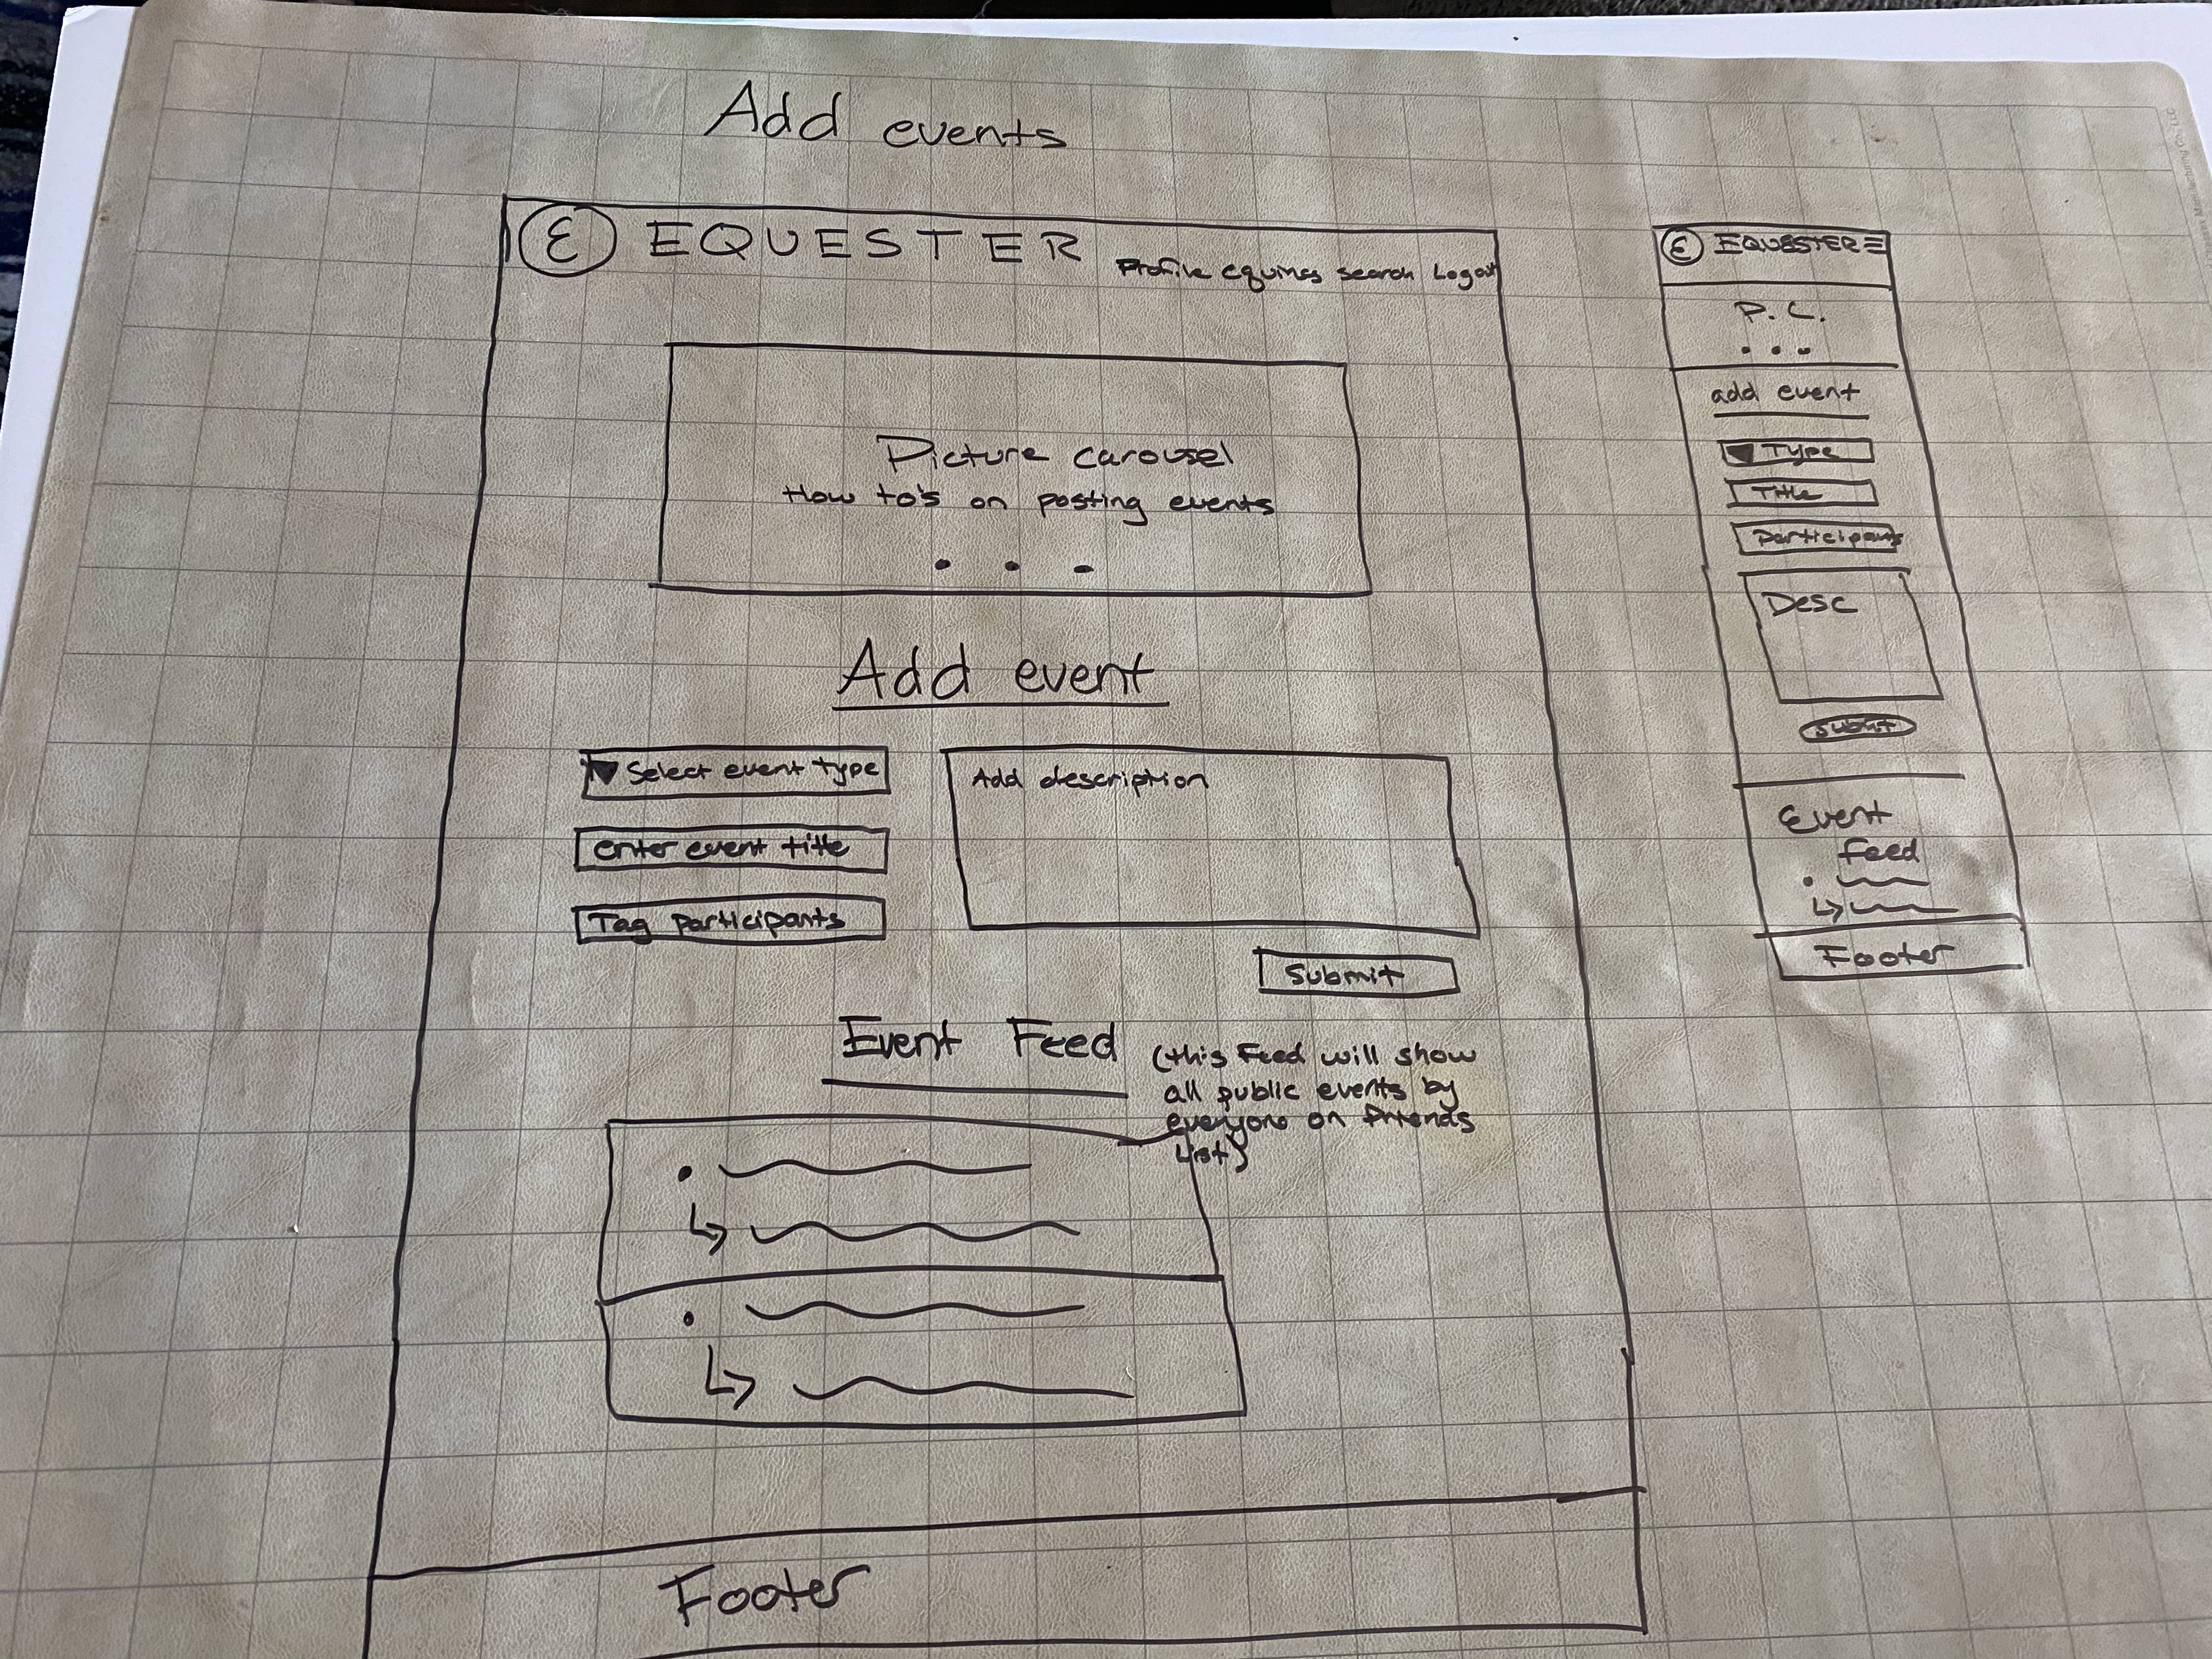 Add events
Ɛ EQUESTER Profile equines search Logout
Picture carousel
How to's on posting events
Add event
Select event type
enter event title
Tag participants
Add description
Submit
Event Feed
(this feed will show
all public events by
everyone on friends
list)
Footer
Ɛ EQUESTER
P.C.
add event
Type
Title
Participants
Desc
submit
Event
feed
Footer
Chessex Manufacturing Co., LLC